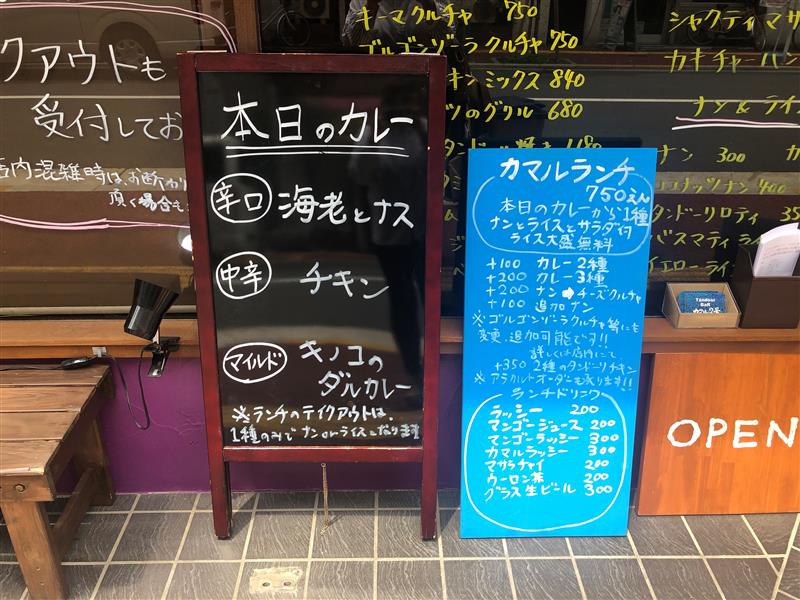 クアウトも
受付してお
店内混雑時は、お断わり
頂く場合も
本日のカレー
辛口 海老とナス
中辛 チキン
マイルド キノコの
ダルカレー
※ランチのテイクアウトは、
1種のみで ナンorライスとなります
キーマクルチャ 750
ゴルゴンゾーラクルチャ 750
キンミックス 840
ツのグリル 680
シャクティマサ
カキチャーハン
ナン&ライ
ナン 300
ココナッツナン 400
タンドーリロティ 35
バスマティライ
イエローライ
カマルランチ
750えん
本日のカレーから1種
ナンとライスとサラダ付
ライス大盛無料
+100 カレー2種
+200 カレー3種
+200 ナン➡チーズクルチャ
+100 追加ナン
※ゴルゴンゾーラクルチャ等にも
変更、追加可能です!!
詳しくは店内にて
+350 2種のタンドーリチキン
※アラカルトオーダーも承ります!!
ランチドリンク
ラッシー 200
マンゴージュース 200
マンゴーラッシー 300
カマルラッシー 300
マサラチャイ 200
ウーロン茶 200
グラス生ビール 300
OPEN